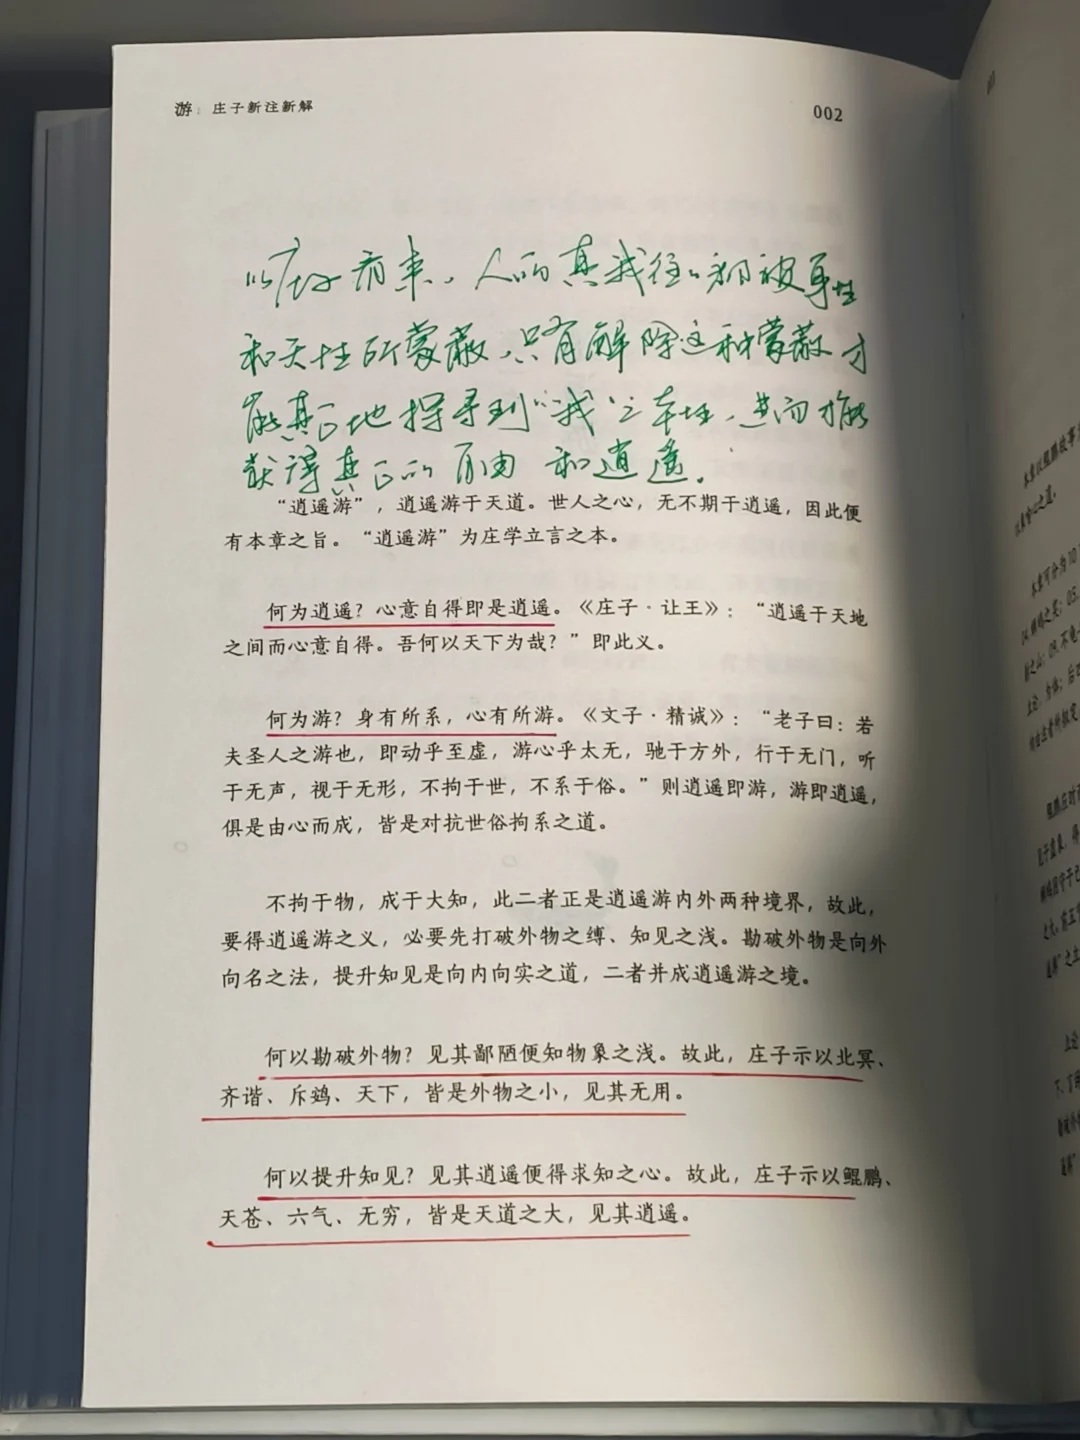 游：庄子新注新解
002
以庄子看来，人的真我往往都被身性
和天性所蒙蔽，只有解除这种蒙蔽才
能真正地探寻到“我”之本性，进而才能
获得真正的自由和逍遥。
“逍遥游”，逍遥游于天道。世人之心，无不期于逍遥，因此便
有本章之旨。“逍遥游”为庄学立言之本。
何为逍遥？心意自得即是逍遥。《庄子·让王》：“逍遥于天地
之间而心意自得。吾何以天下为哉？”即此义。
何为游？身有所系，心有所游。《文子·精诚》：“老子曰：若
夫圣人之游也，即动乎至虚，游心乎太无，驰于方外，行于无门，听
于无声，视于无形，不拘于世，不系于俗。”则逍遥即游，游即逍遥，
俱是由心而成，皆是对抗世俗拘系之道。
不拘于物，成于大知，此二者正是逍遥游内外两种境界，故此，
要得逍遥游之义，必要先打破外物之缚、知见之浅。勘破外物是向外
向名之法，提升知见是向内向实之道，二者并成逍遥游之境。
何以勘破外物？见其鄙陋便知物象之浅。故此，庄子示以北冥、
齐谐、斥鴳、天下，皆是外物之小，见其无用。
何以提升知见？见其逍遥便得求知之心。故此，庄子示以鲲鹏、
天苍、六气、无穷，皆是天道之大，见其逍遥。